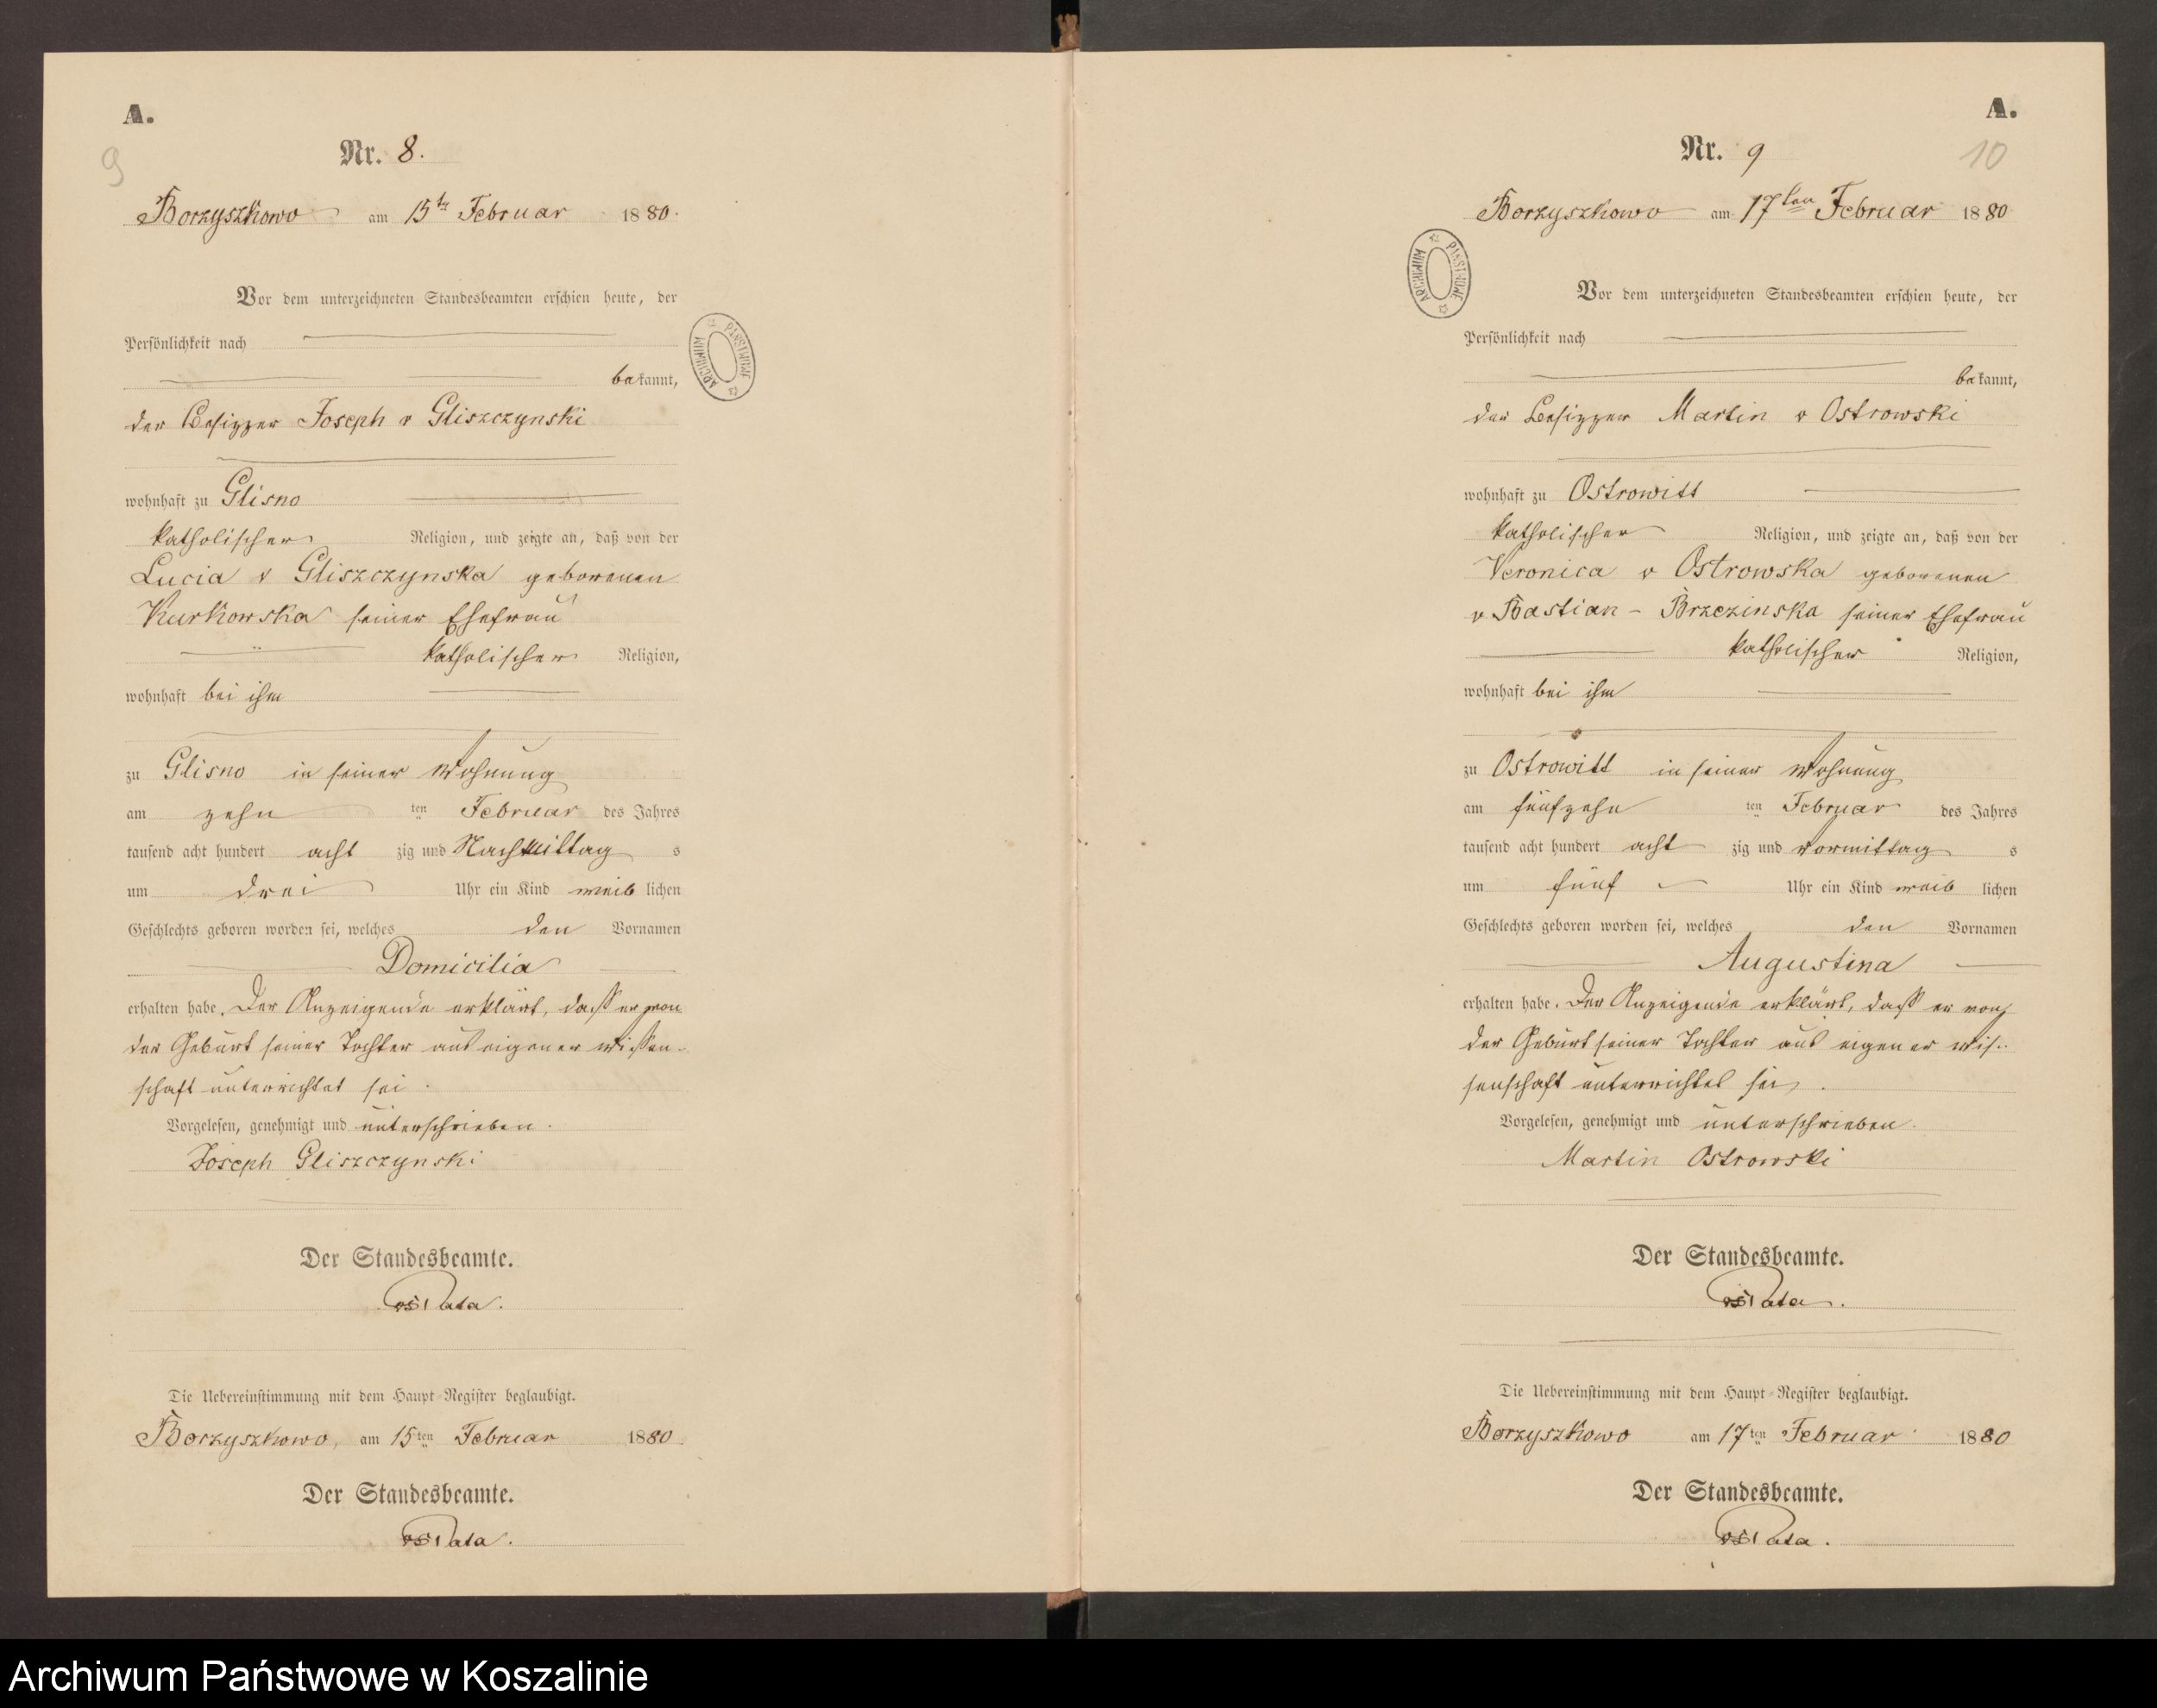 A.
9
Nr. 8.
Borzyszkowo am 15ten Februar 1880.
Vor dem unterzeichneten Standesbeamten erschien heute, der
Persönlichkeit nach
bekannt,
der Besitzer Joseph v Gliszczynski
wohnhaft zu Glisno
katholischer Religion, und zeigte an, daß von der
Lucia v Gliszczynska geborenen
Kurkowska seiner Ehefrau
katholischer Religion,
wohnhaft bei ihm
zu Glisno in seiner Wohnung
am zehn ten Februar des Jahres
tausend acht hundert acht zig und Nachmittag s
um drei Uhr ein Kind weib lichen
Geschlechts geboren worden sei, welches den Vornamen
Domicilia
erhalten habe. Der Anzeigende erklärt, dass er von
der Geburt seiner Tochter aus eigener Wissen-
schaft unterrichtet sei.
Vorgelesen, genehmigt und unterschrieben.
Joseph Gliszczynski
Der Standesbeamte.
Die Uebereinstimmung mit dem Haupt-Register beglaubigt.
Borzyszkowo, am 15ten Februar 1880
Der Standesbeamte.
ARCHIWUM PAŃSTWOWE
A.
10
Nr. 9
Borzyszkowo am 17ten Februar 1880
Vor dem unterzeichneten Standesbeamten erschien heute, der
Persönlichkeit nach
bekannt,
der Besitzer Martin v Ostrowski
wohnhaft zu Ostrowitt
katholischer Religion, und zeigte an, daß von der
Veronica v Ostrowska geborenen
v Bastian - Brzezinska seiner Ehefrau
katholischer Religion,
wohnhaft bei ihm
zu Ostrowitt in seiner Wohnung
am fünfzehn ten Februar des Jahres
tausend acht hundert acht zig und Vormittag s
um fünf Uhr ein Kind weib lichen
Geschlechts geboren worden sei, welches den Vornamen
Augustina
erhalten habe. Der Anzeigende erklärt, dass er von
der Geburt seiner Tochter aus eigener Wis-
senschaft unterrichtet sei.
Vorgelesen, genehmigt und unterschrieben.
Martin Ostrowski
Der Standesbeamte.
Die Uebereinstimmung mit dem Haupt-Register beglaubigt.
Borzyszkowo am 17ten Februar 1880
Der Standesbeamte.
ARCHIWUM PAŃSTWOWE
Archiwum Państwowe w Koszalinie